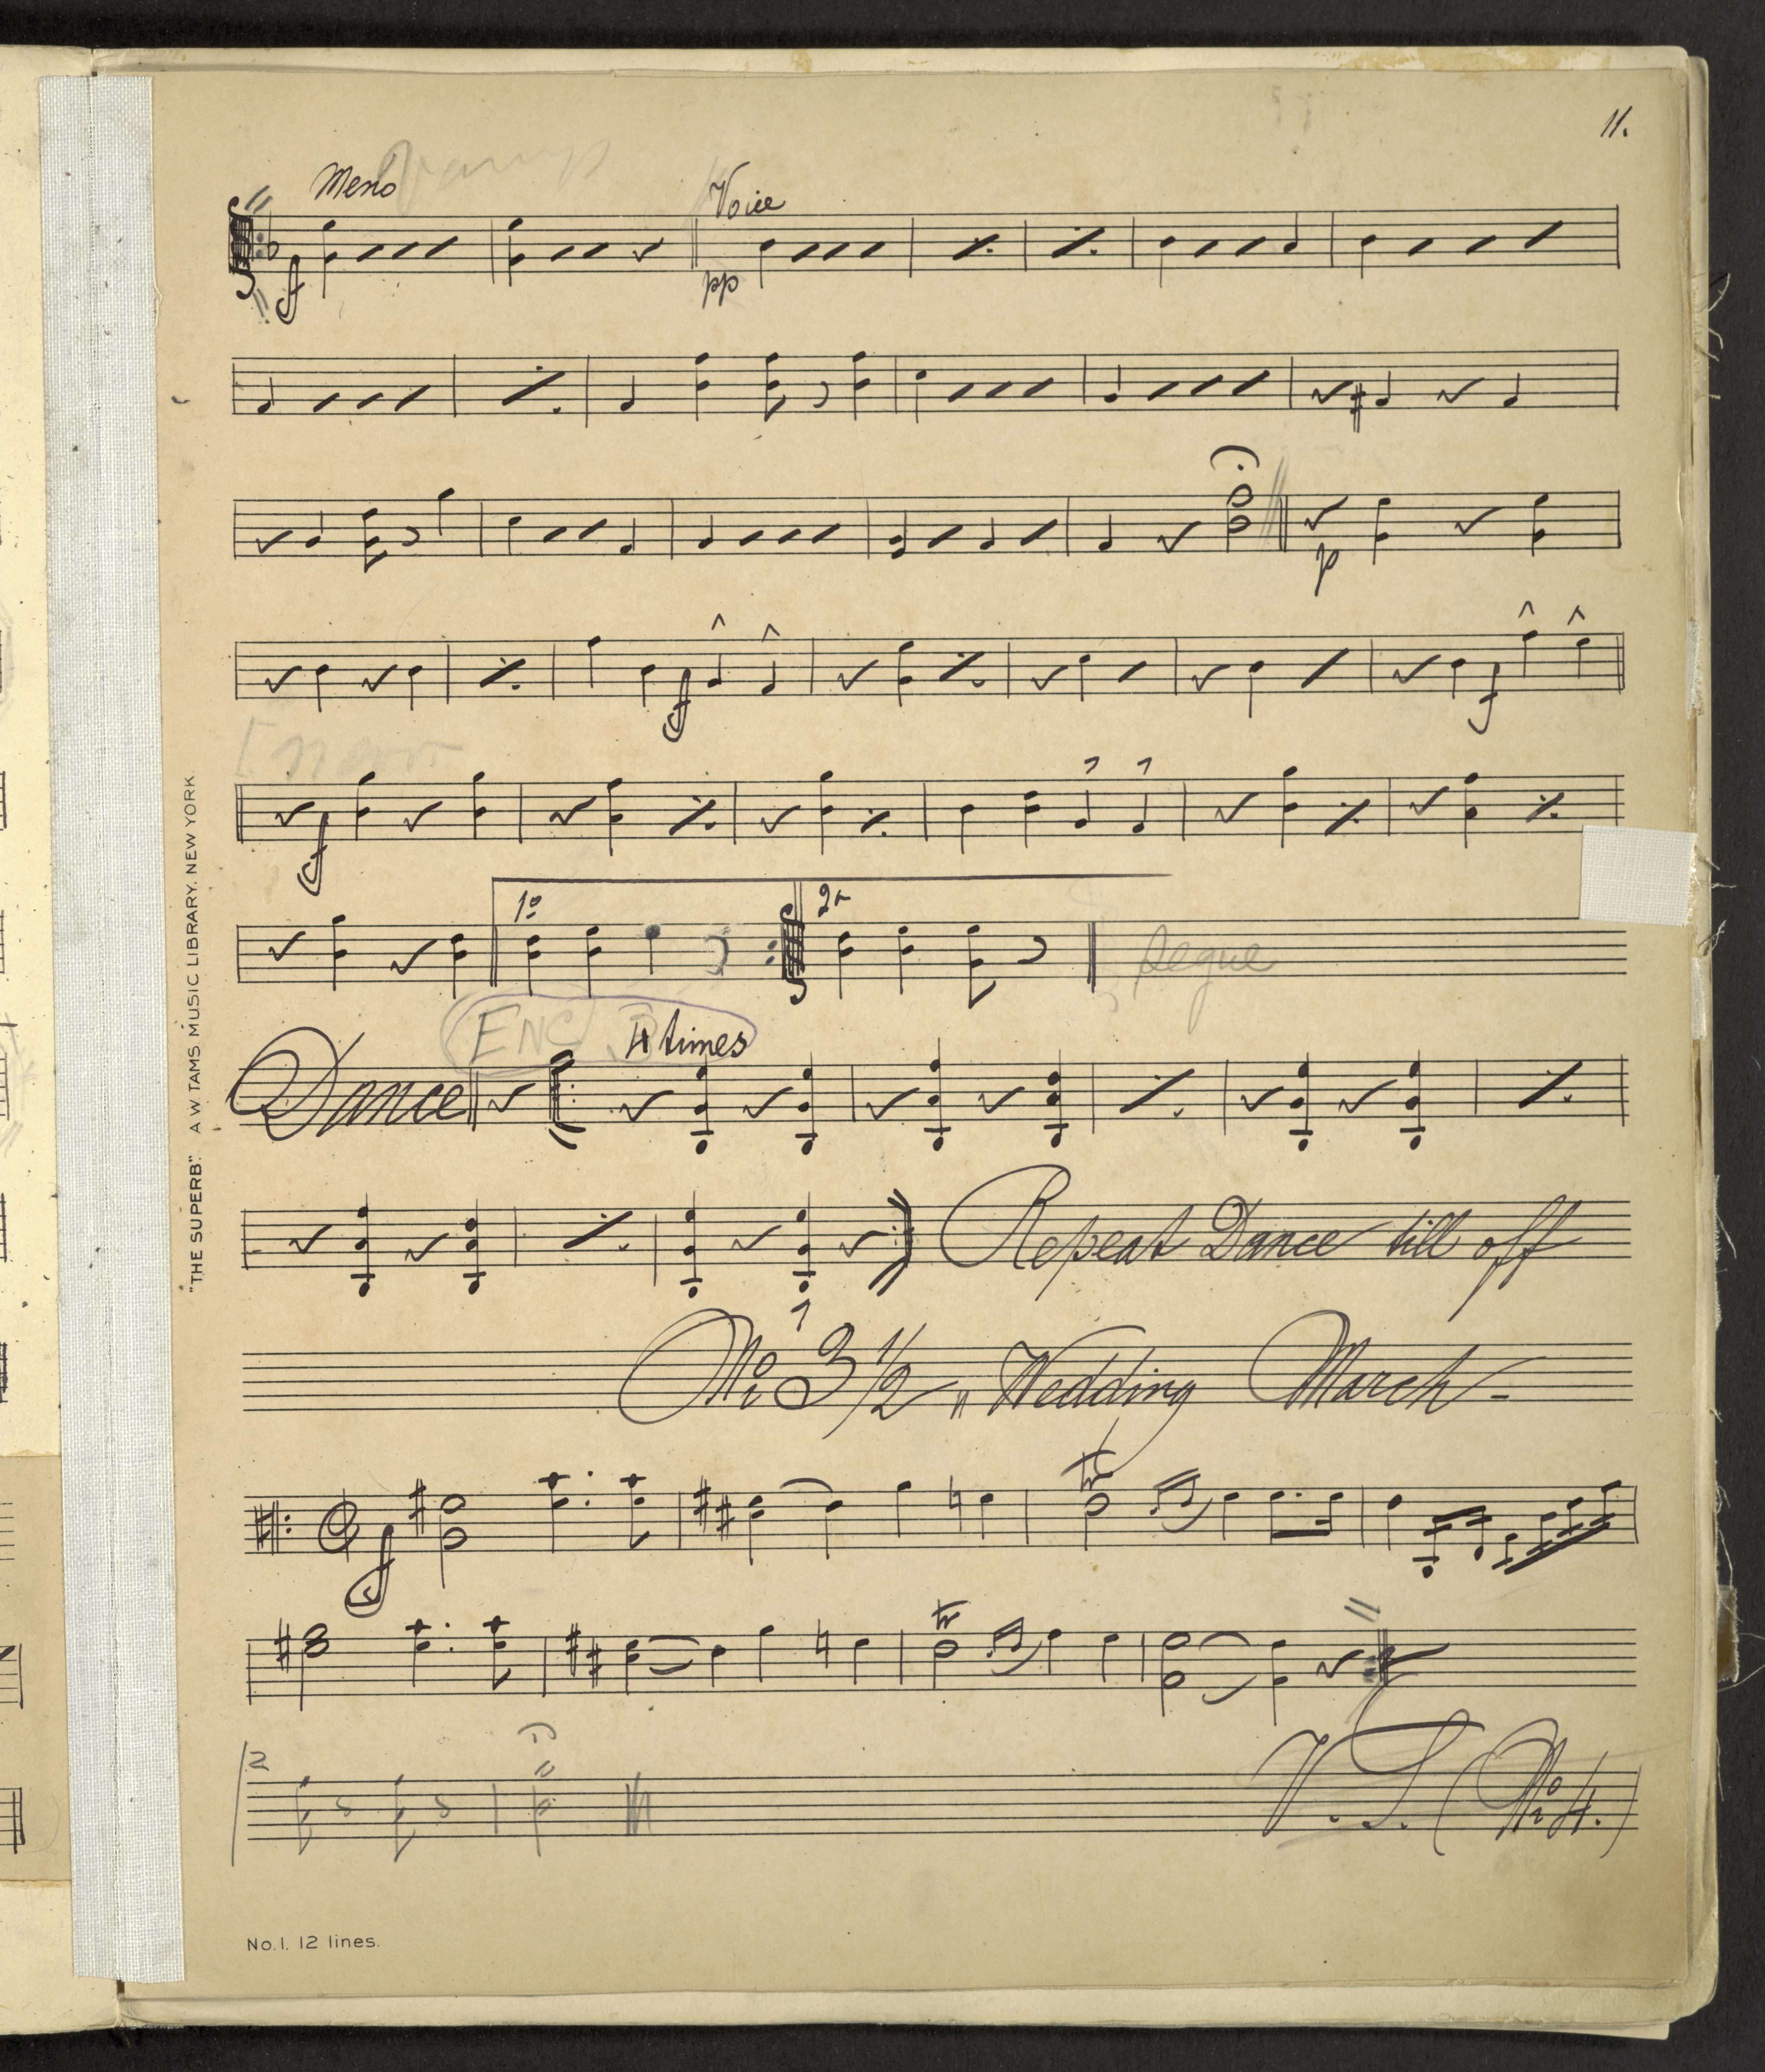 11.
Meno Vamp
Voice
f
pp
p
f f
f
1º 2ª
Segue
ENC
Dance 4 times
Repeat Dance till off
Nº 3 1/2 „ Wedding March -
f tr
tr
2
V. S. (Nº 4.)
"THE SUPERB." A W TAMS MUSIC LIBRARY. NEW YORK
No. 1. 12 lines.